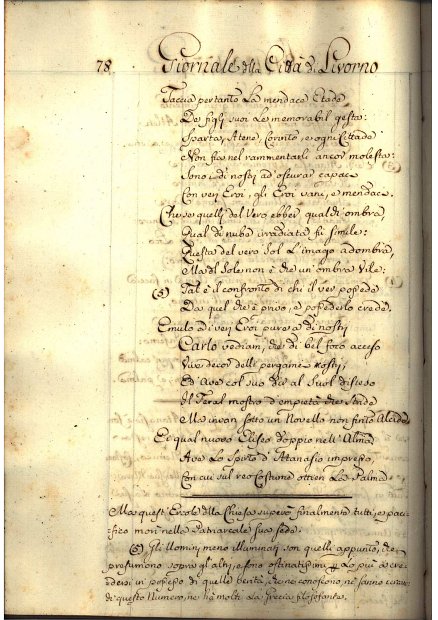 78 Giornale della Città di Livorno
Taccia pertanto La mendace Etade
De figli suoi Le memorabil gesta:
Sparta, Atene, Corinto, e ogni Cittade
Non fia nel rammentarli ancor molesta:
Sono i dì nostri ad oscurar capace
Con veri Eroi, gli Eroi vani, e mendace.
Che se quelli del Vero ebber qualch' ombra,
Qual di nube irradiata fù simile:
Questa del vero Sol L'imago adombra,
Ma del Sole non è che un'ombra Vile:
(5) Tal è il confronto di chi il ver possede
Da quel che è privo, e possederlo crede.
Emulo ai veri Eroi pure a dì nostri
Carlo vediam, che di bel foco acceso
Vive decor delli pergami nostri,
Ed Ave col suo dir al Suol disteso
Il Feral mostro d'empietà che Stride
Ma invan sotto un Novello non finto Alcide.
E qual nuovo Eliseo doppio nell'Alma
Ave Lo Spirto d'Atanasio impresso,
Con cui sul reo Costume ottien La Palma
Ma quest' Ercole della Chiesa superò finalmente tutti, e paci-
fico morì nella Patriarcale sua sede.
(5) Gli Uomini meno illuminati son quelli appunto, che
presumono sopra gli altri, e sono ostinatissimi Lo più a cre-
dersi in possesso di quelle verità, che ne conoscono, nè sanno cercare
di questo Numero, ne hà molti La Grecia filosofante.